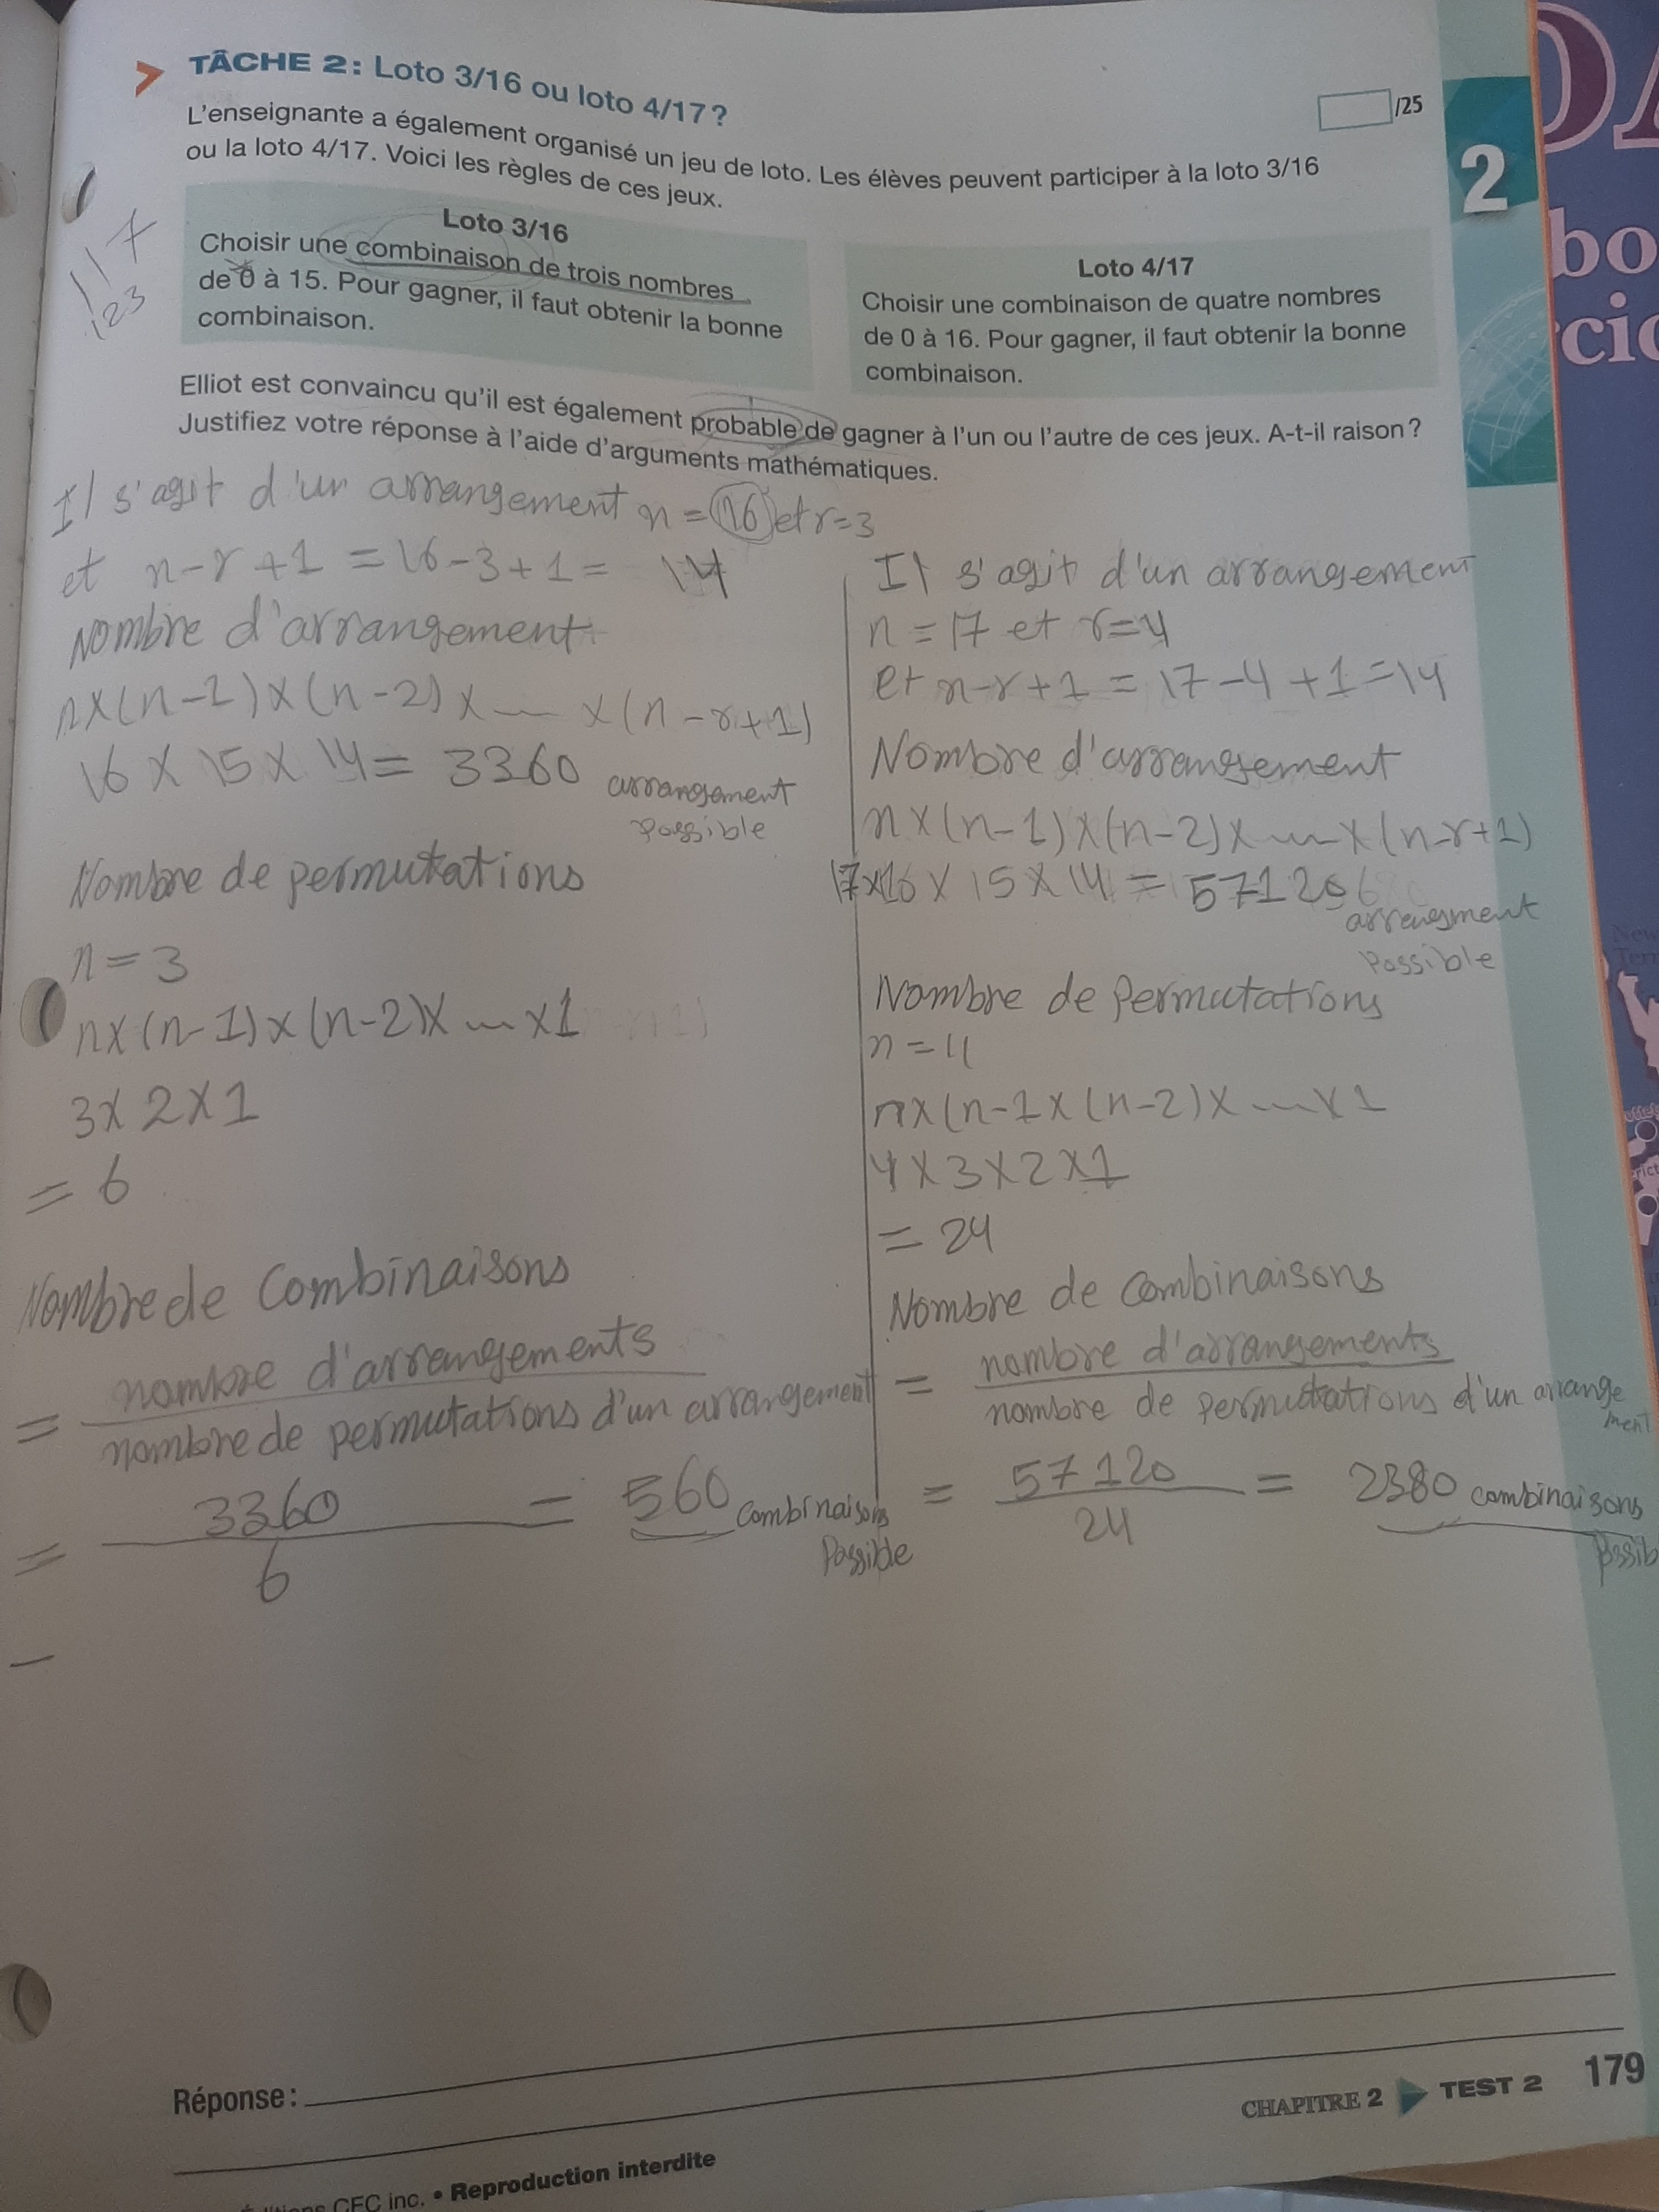 TÂCHE 2 : Loto 3/16 ou loto 4/17 ?
/25
L'enseignante a également organisé un jeu de loto. Les élèves peuvent participer à la loto 3/16
ou la loto 4/17. Voici les règles de ces jeux.
2
117
123
Loto 3/16
Choisir une combinaison de trois nombres
de 0 à 15. Pour gagner, il faut obtenir la bonne
combinaison.
Loto 4/17
Choisir une combinaison de quatre nombres
de 0 à 16. Pour gagner, il faut obtenir la bonne
combinaison.
Elliot est convaincu qu'il est également probable de gagner à l'un ou l'autre de ces jeux. A-t-il raison ?
Justifiez votre réponse à l'aide d'arguments mathématiques.
Il s'agit d'un arrangement n = 16 et r=3
et n-r+1 = 16-3+1 = 14
Nombre d'arrangement
n×(n-1)×(n-2)×...×(n-r+1)
16 × 15 × 14 = 3360 arrangement
possible
Nombre de permutations
n = 3
n×(n-1)×(n-2)×...×1
3×2×1
= 6
Nombre de Combinaisons
= nombre d'arrangements
nombre de permutations d'un arrangement
= 3360 = 560 Combinaisons
6 Possible
Il s'agit d'un arrangement
n = 17 et r=4
et n-r+1 = 17-4+1=14
Nombre d'arrangement
n×(n-1)×(n-2)×...×(n-r+1)
17×16×15×14 = 57120
arrengment
Possible
Nombre de Permutations
n = 4
n×(n-1×(n-2)×...×1
4×3×2×1
= 24
Nombre de Combinaisons
= nombre d'arrangements
nombre de permutations d'un arrange
ment
= 57120 = 2380 combinaisons
24 possib
Réponse :
CHAPITRE 2 TEST 2 179
CEC inc. • Reproduction interdite
bo
cic